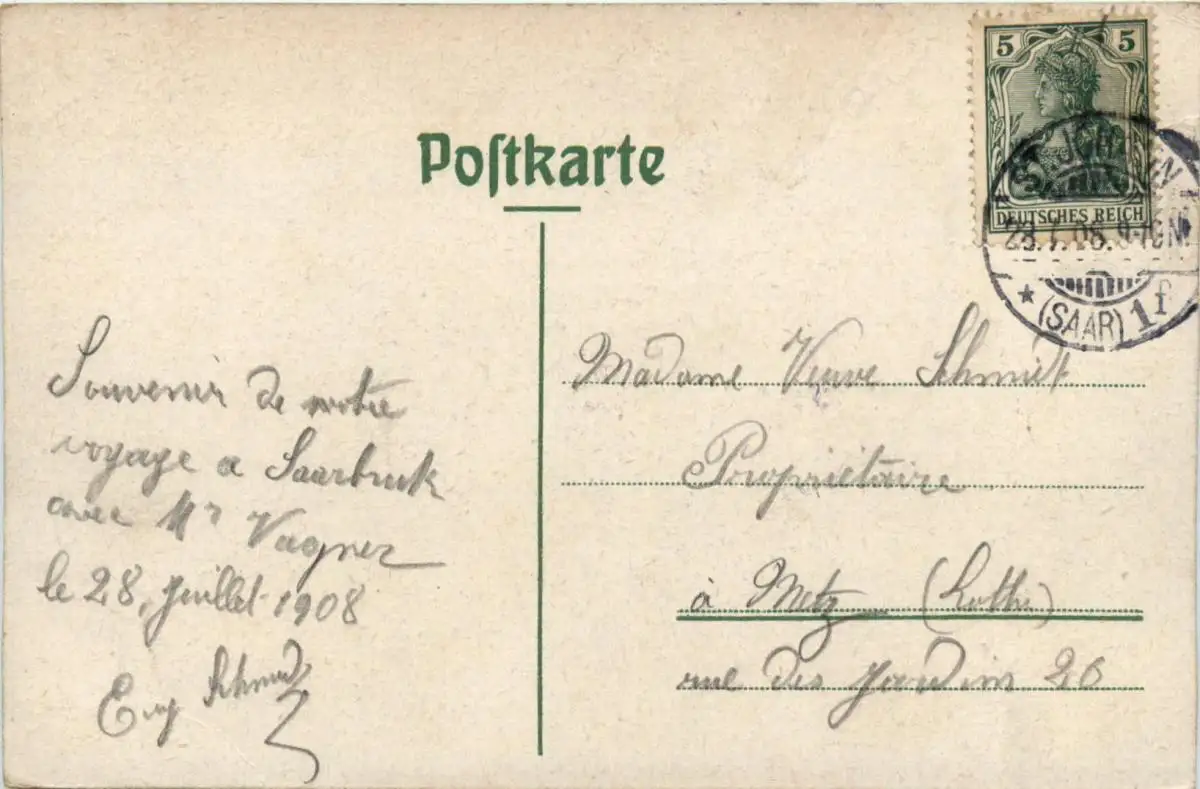 Poſtkarte
5 5
DEUTSCHES REICH
ST. JOHANN
28.7.08. 9-10N.
★ (SAAR) 1f
Souvenir de notre
voyage a Saarbruk
avec Mr Vagner
le 28, juillet 1908
Eug Schmidt
Madame Veuve Schmidt
Propriétaire
à Metz (Lothr)
rue des Jardins 26